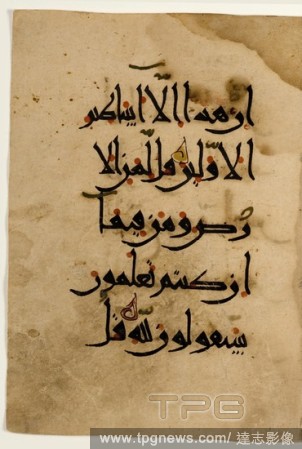 ان هذا الا اسطير
الاولين قل لمن الا
رض ومن فيها
ان كنتم تعلمون
سيقولون لله قل
TPG
www.tpgnews.com/ 達志影像